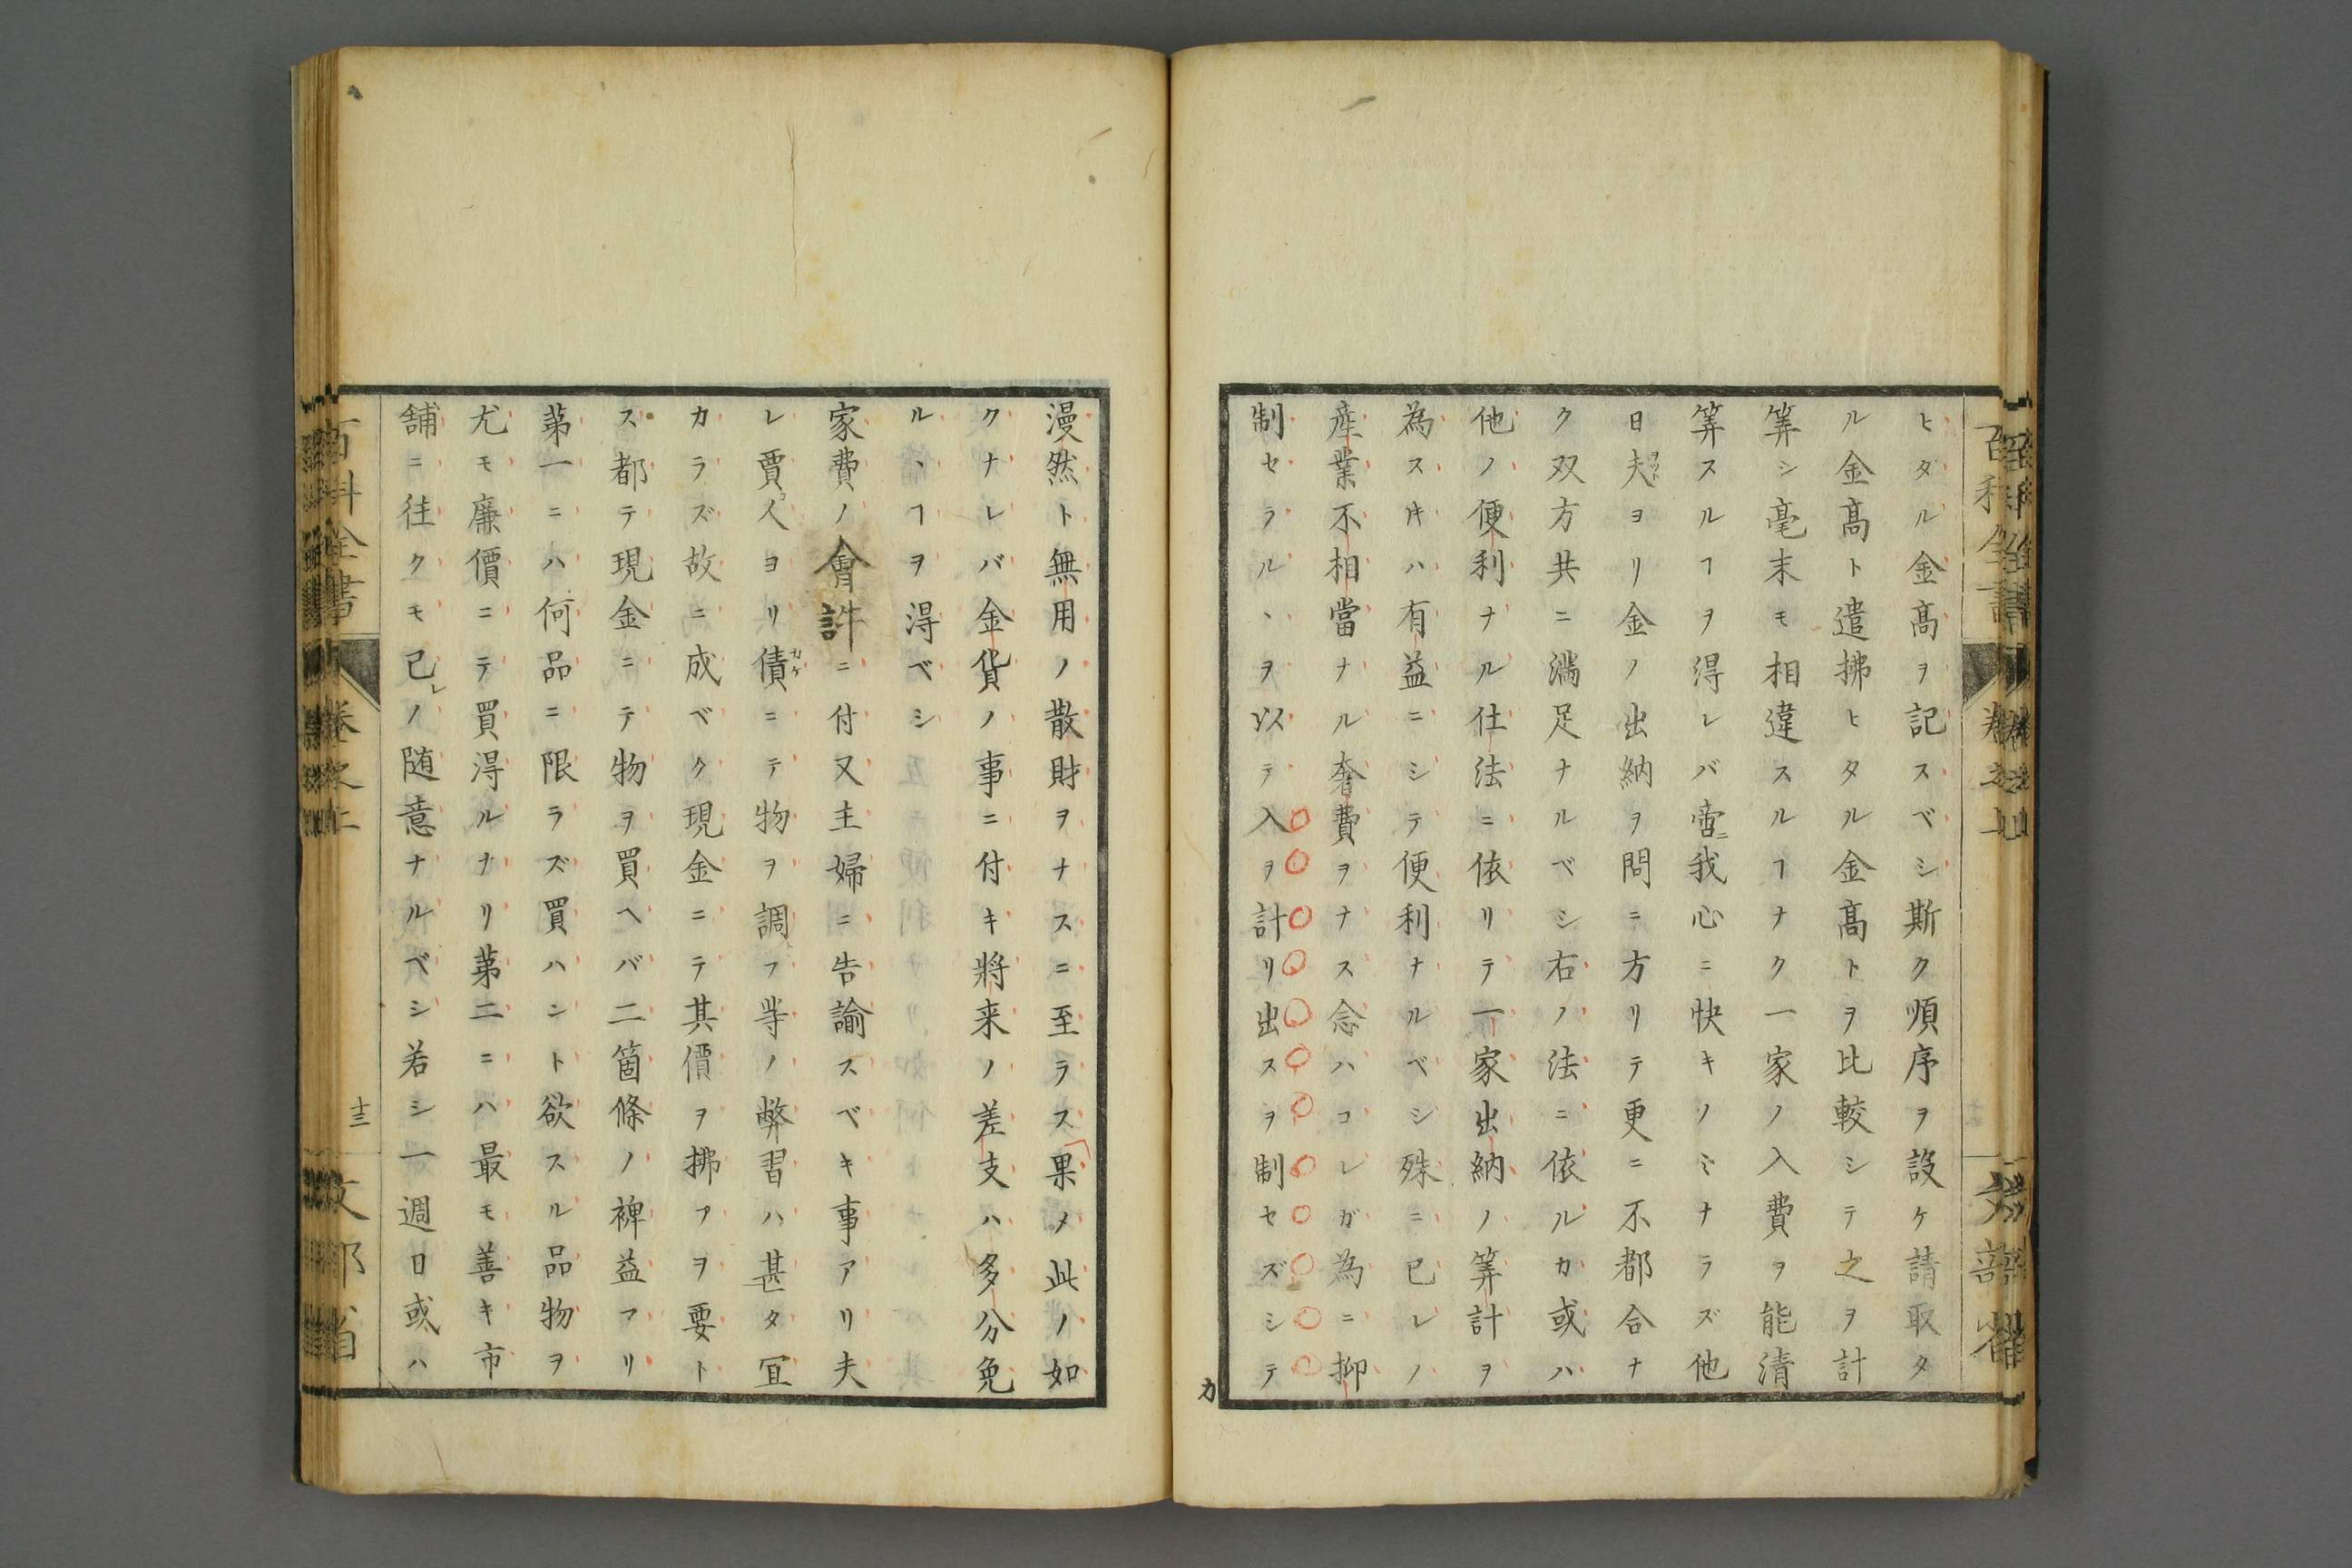 ヒタル金髙ヲ記スベシ斯ク順序ヲ設ケ請取タ
ル金髙ト遣拂ヒタル金髙トヲ比較シテ之ヲ計
筭シ毫末モ相違スルヿナク一家ノ入費ヲ能清
筭スルヿヲ得レバ啻ニ我心ニ快キノミナラズ他
日夫ヨリ金ノ出納ヲ問ニ方リテ更ニ不都合ナ
ク双方共ニ満足ナルベシ右ノ法ニ依ルカ或ハ
他ノ便利ナル仕法ニ依リテ一家出納ノ筭計ヲ
為スキハ有益ニシテ便利ナルベシ殊ニ已レノ
産業不相當ナル奢費ヲナス念ハコレガ為ニ抑
制セラルヽヲ以テ入ヲ計リ出スヲ制セズシテ
カ
漫然ト無用ノ散財ヲナスニ至ラス果メ此ノ如
クナレバ金貨ノ事ニ付キ將来ノ差支ハ多分免
ルヽヿヲ得ベシ
家費ノ會計ニ付又主婦ニ告諭スベキ事アリ夫
レ賈人ヨリ債ニテ物ヲ調フ䓁ノ弊習ハ甚タ冝
カラズ故ニ成ベク現金ニテ其價ヲ拂フヲ要ト
ス都テ現金ニテ物ヲ買ヘバ二箇條ノ裨益アリ
第一ニハ何品ニ限ラズ買ハント欲スル品物ヲ
尤モ廉價ニテ買得ルナリ第二ニハ最モ善キ市
舗ニ往クモ己レノ随意ナルベシ若シ一週日或ハ
百科全書
卷之上
十三
文部省